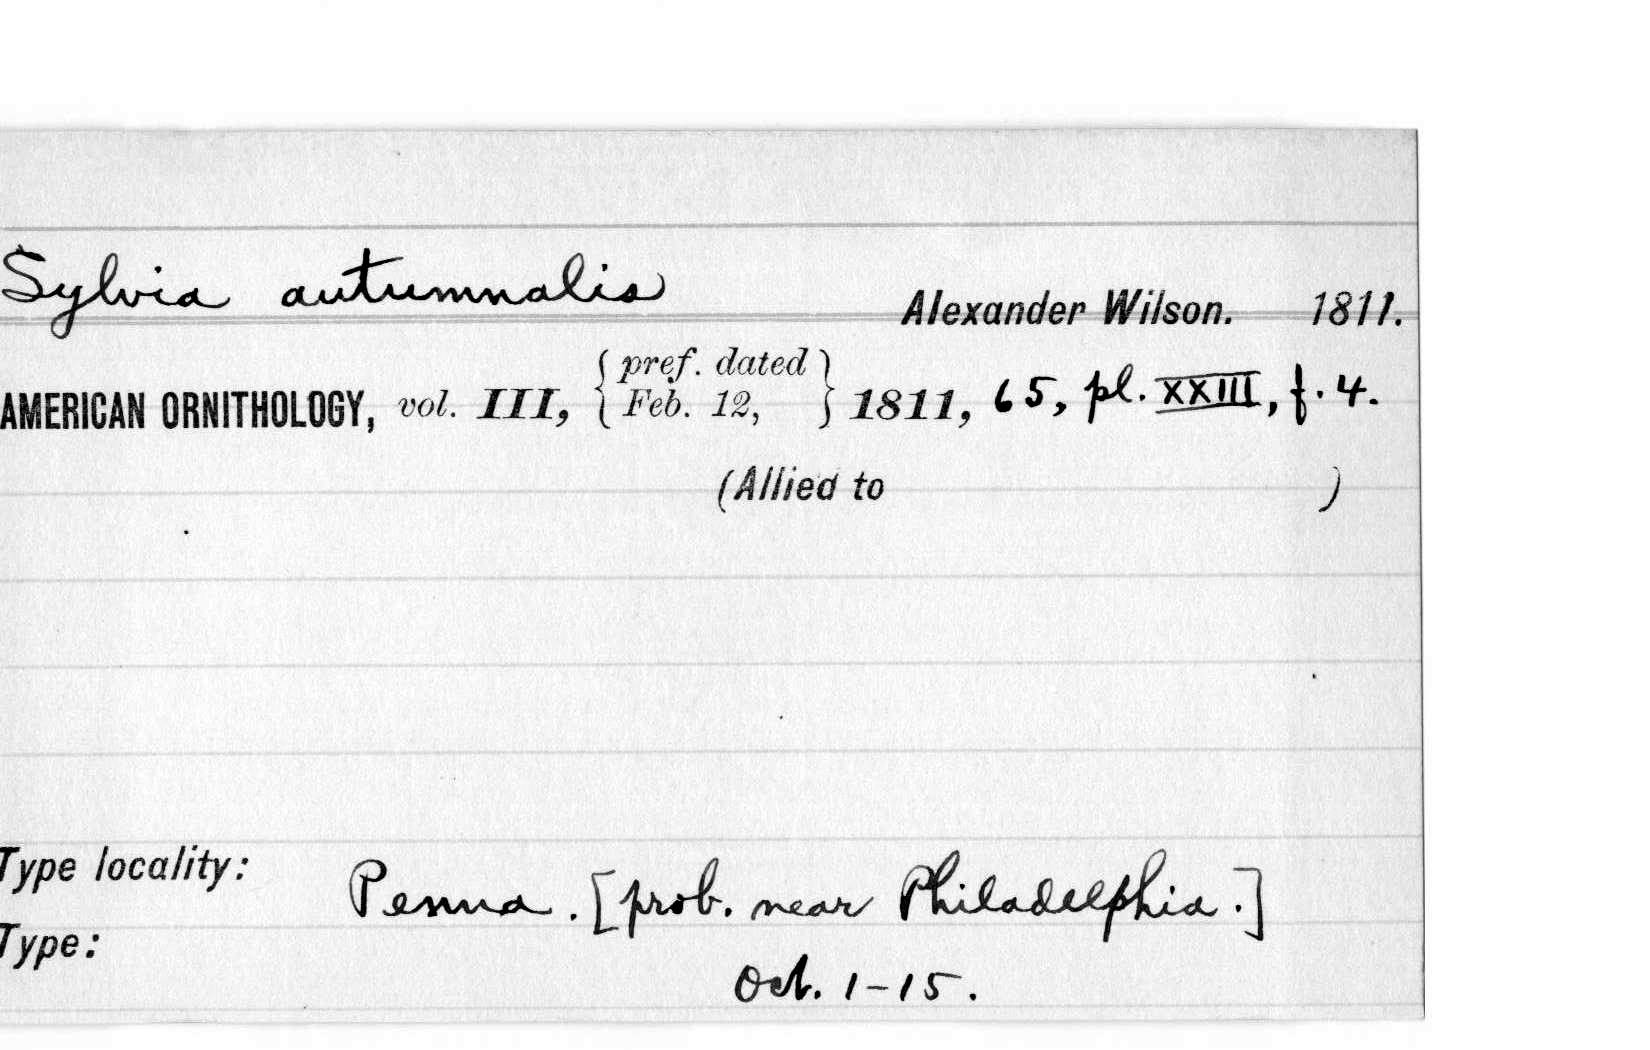 Sylvia autumnalis
Alexander Wilson. 1811.
AMERICAN ORNITHOLOGY, vol. III, { pref. dated Feb. 12, } 1811, 65, pl. XXIII, f. 4.
(Allied to )
Type locality: Penna. [prob. near Philadelphia.]
Type:
Oct. 1-15.